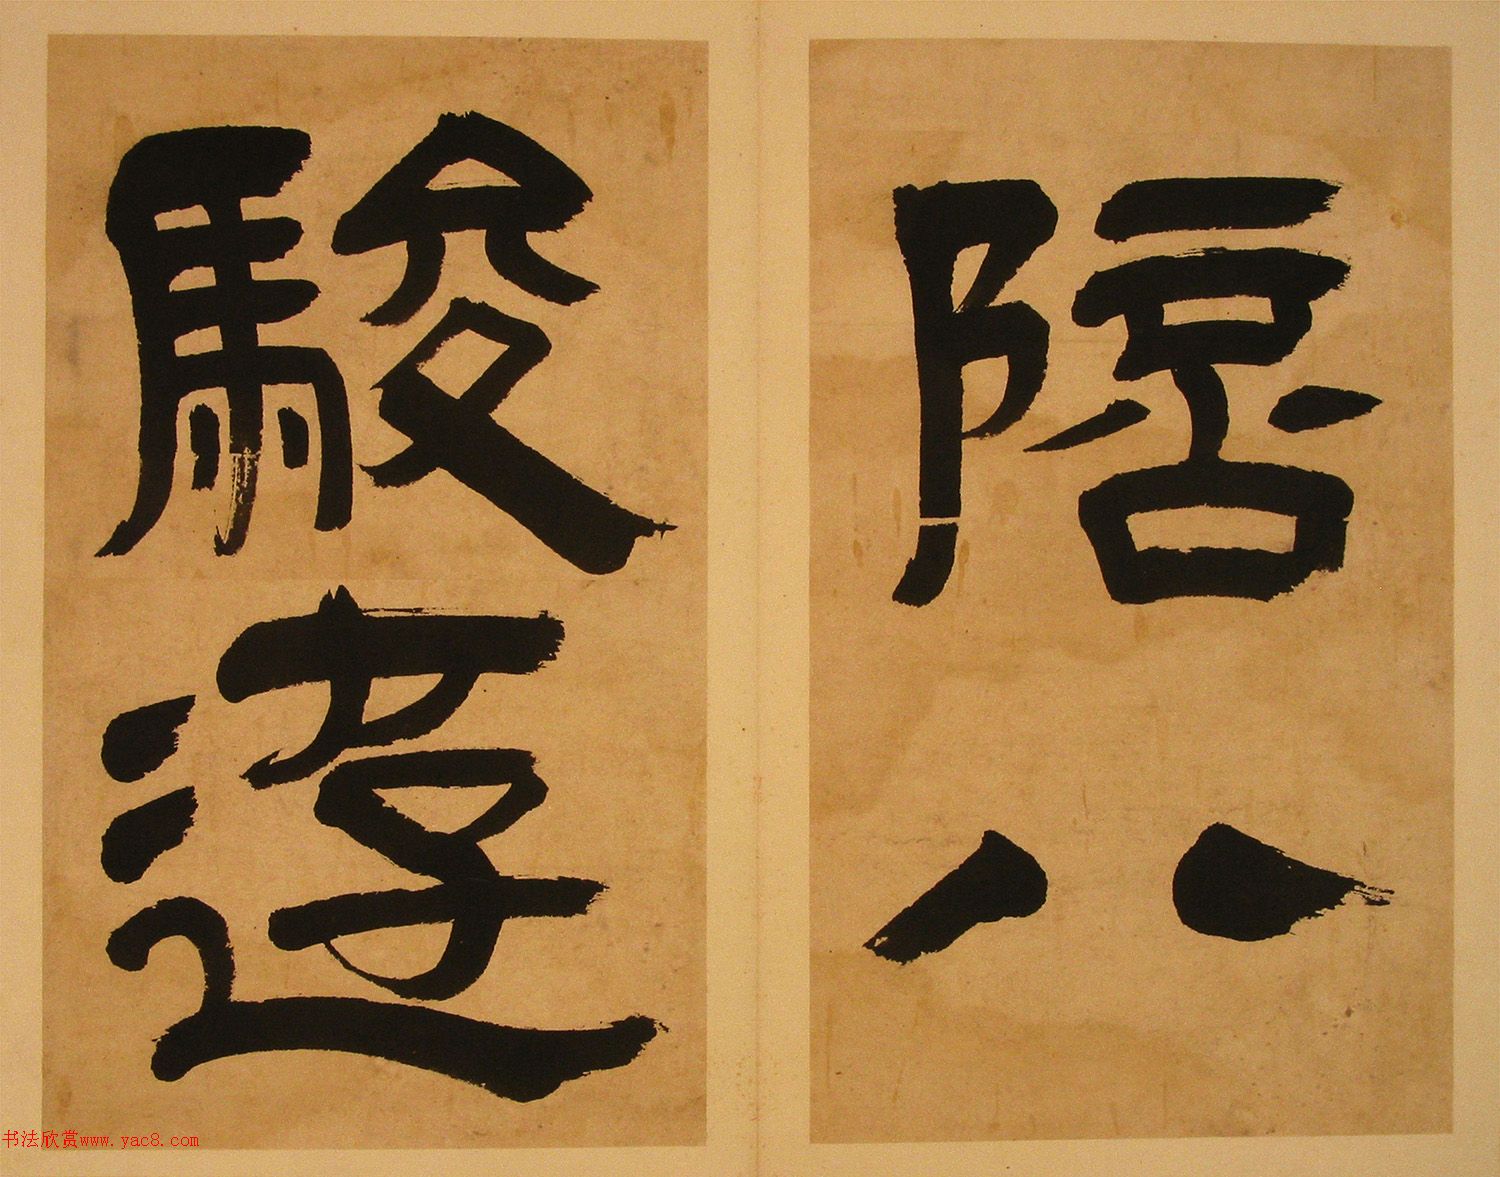 陪八
駿遊
书法欣赏www.yac8.com